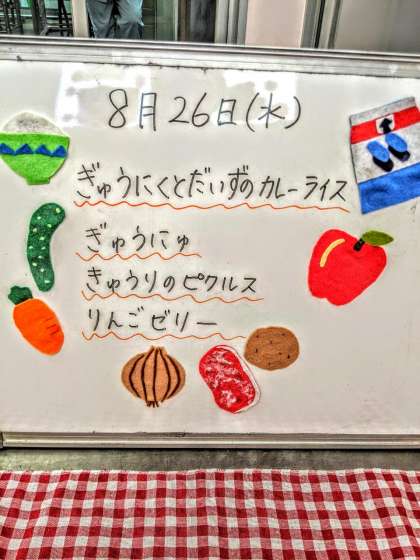 8月26日(水)
ぎゅうにくとだいずのカレーライス
ぎゅうにゅ
きゅうりのピクルス
りんごゼリー